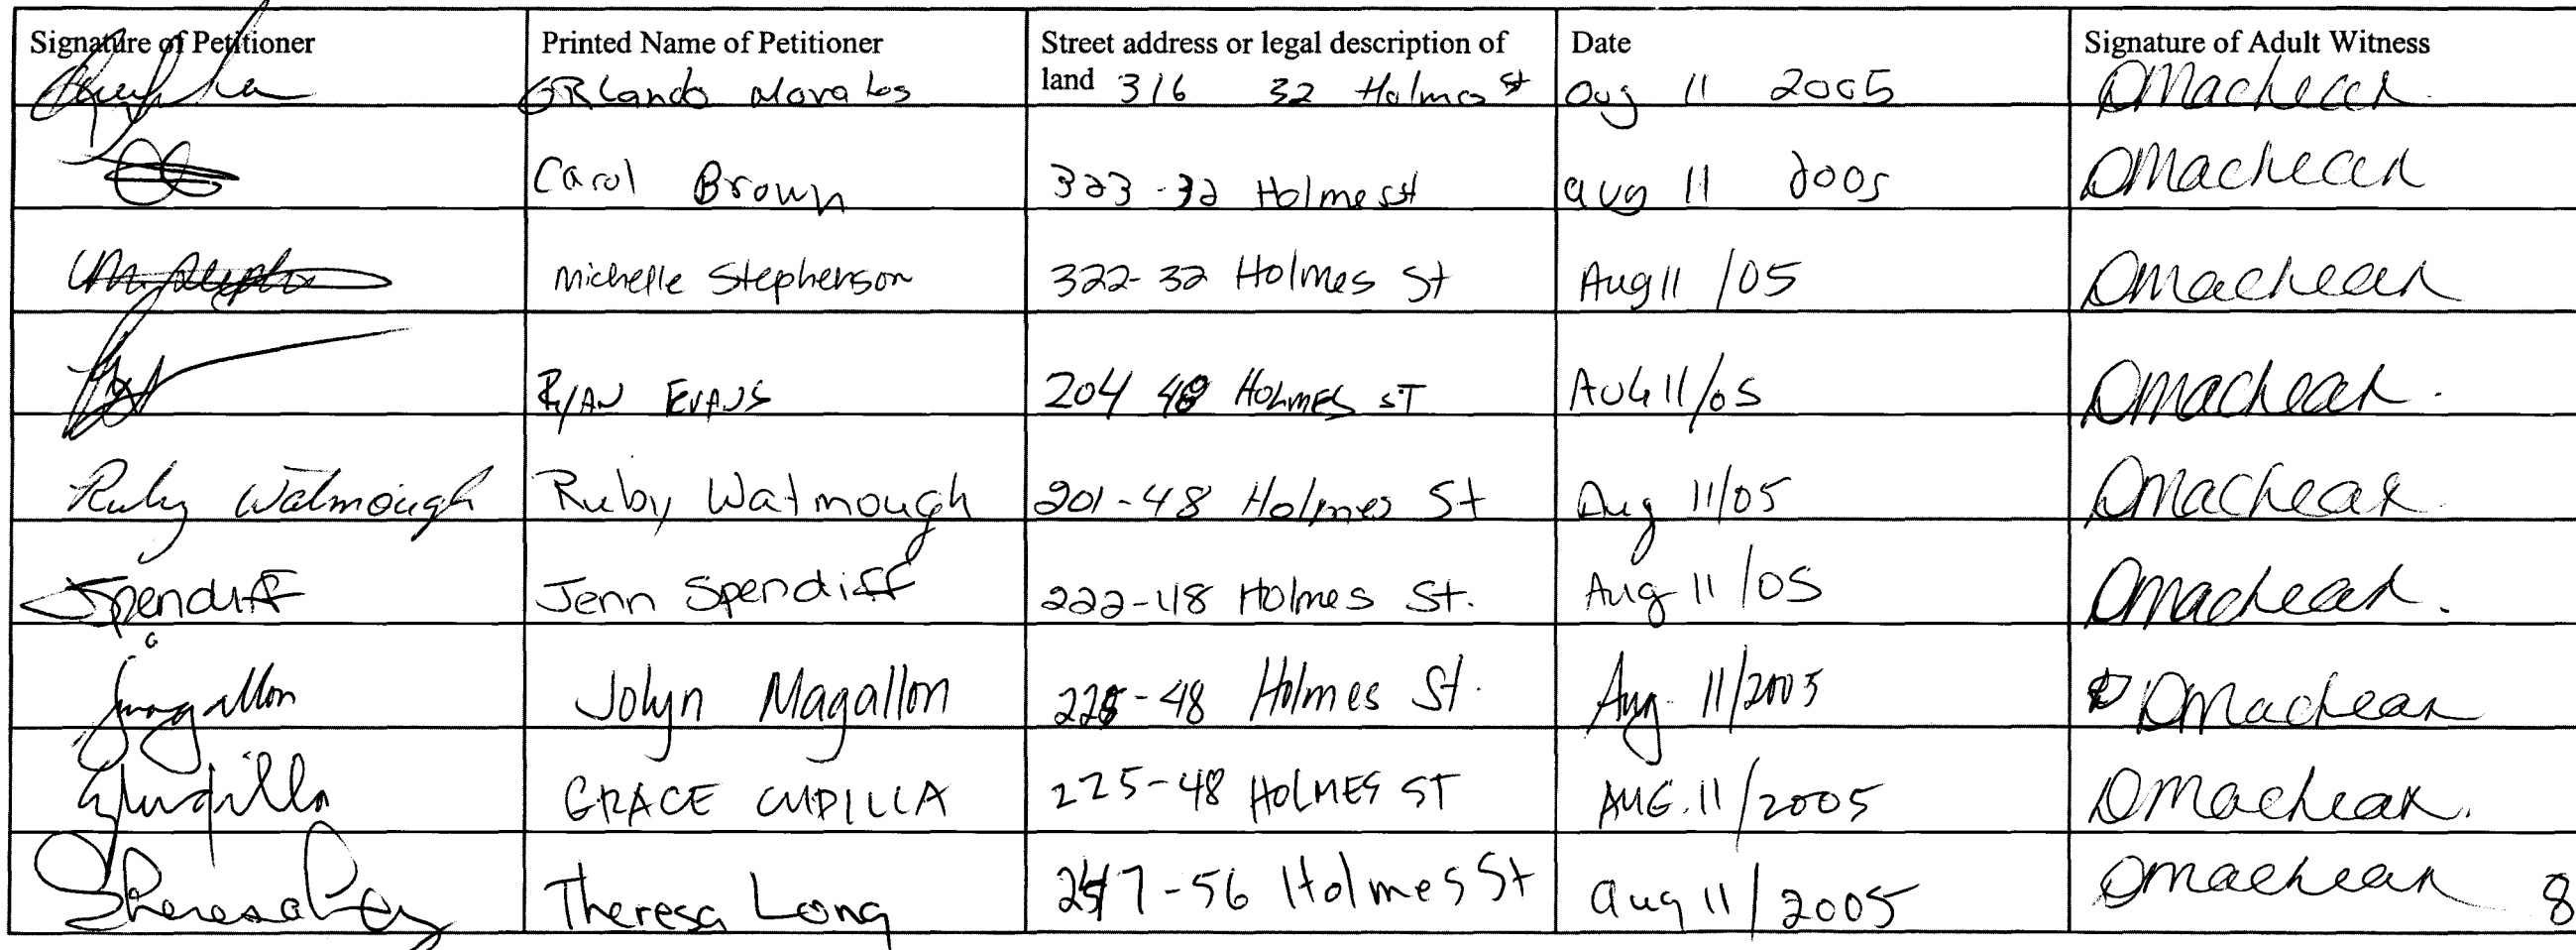 Signature of Petitioner Printed Name of Petitioner Street address or legal description of land Date Signature of Adult Witness
ORLando Morales 316 32 Holmes st Aug 11 2005 DMacLean
Carol Brown 323-32 Holmes st aug 11 2005 DMacLean
Michelle Stephenson 322-32 Holmes St Aug 11/05 DMacLean
RYAN EVANS 204 48 HOLMES ST AUG 11/05 DMacLean.
Ruby Watmough Ruby Watmough 201-48 Holmes St Aug 11/05 DMacLean.
JSpendiff Jenn Spendiff 222-48 Holmes St. Aug 11/05 DMacLean.
Jmagallon Jolyn Magallon -48 Holmes St. Aug. 11/2005 DMacLean
GRACE CUPILLA 225-48 HOLMES ST AUG. 11/2005 DMacLean.
Theresa Long Theresa Long 247-56 Holmes St aug 11/2005 DMacLean
8